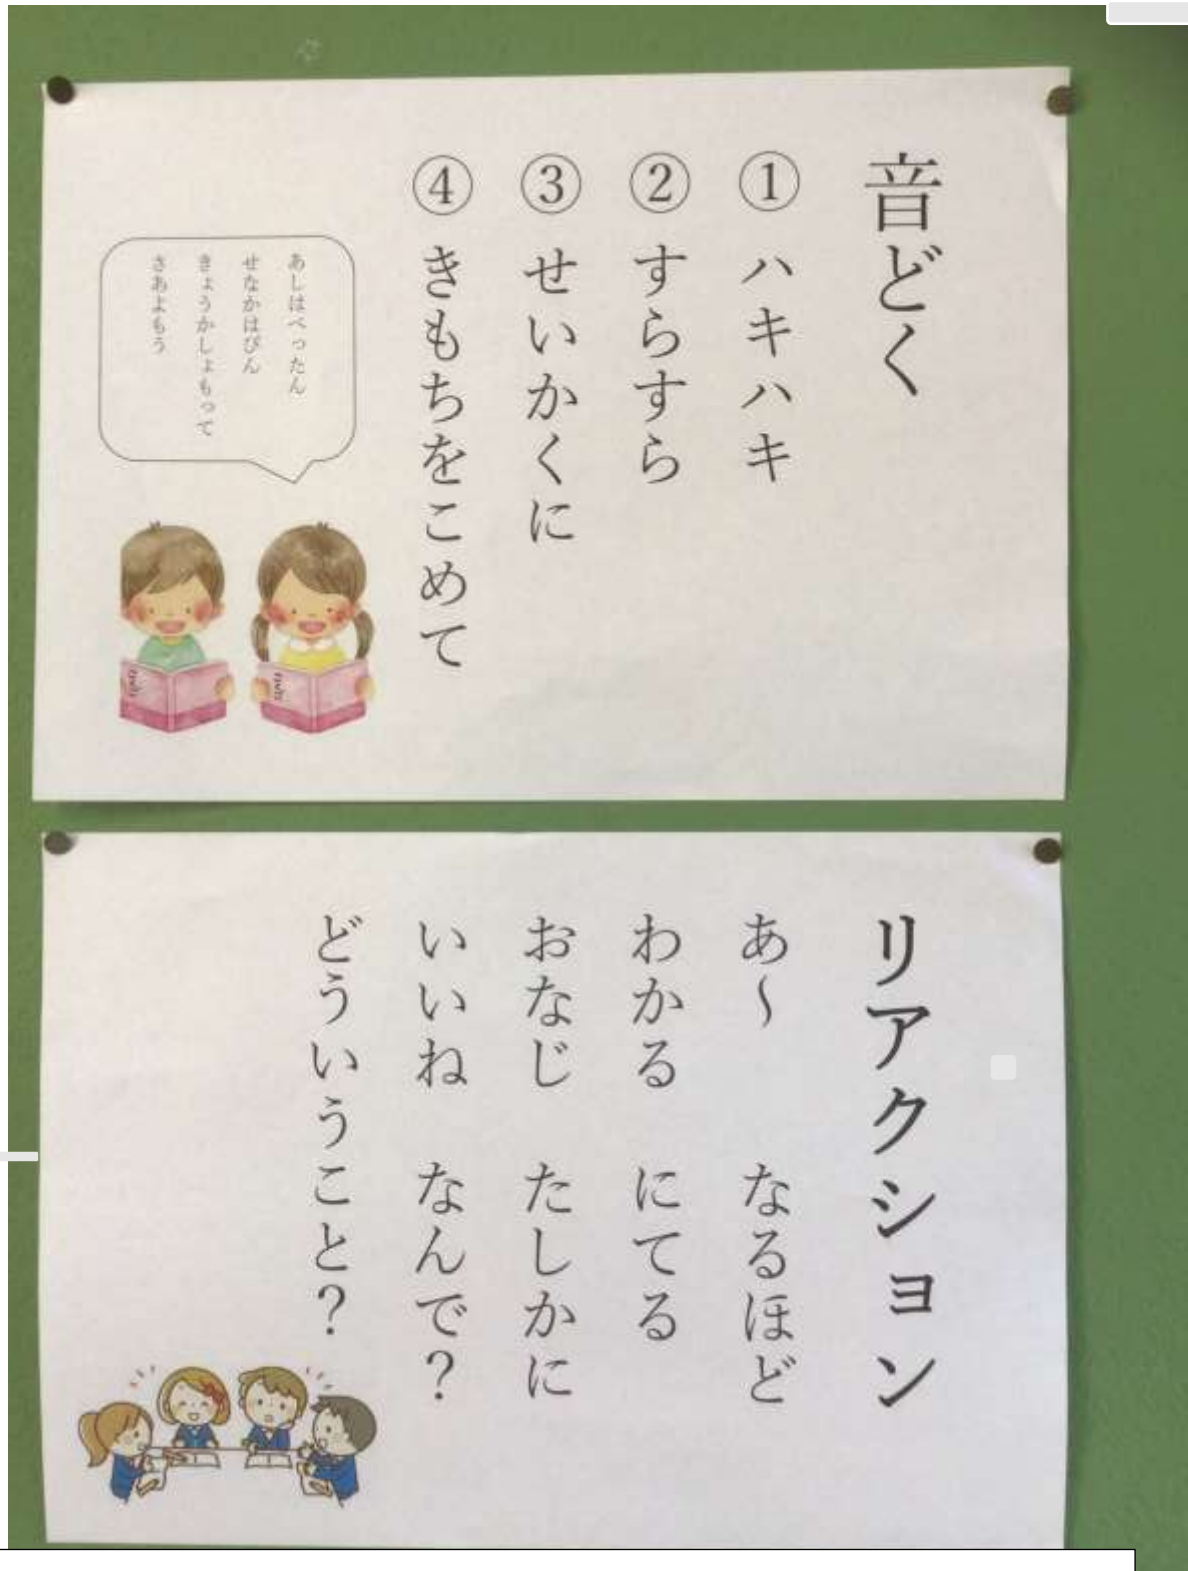 音どく
① ハキハキ
② すらすら
③ せいかくに
④ きもちをこめて
あしはぺったん
せなかはぴん
きょうかしょもって
さあよもう
リアクション
あ～　なるほど
わかる　にてる
おなじ　たしかに
いいね　なんで？
どういうこと？